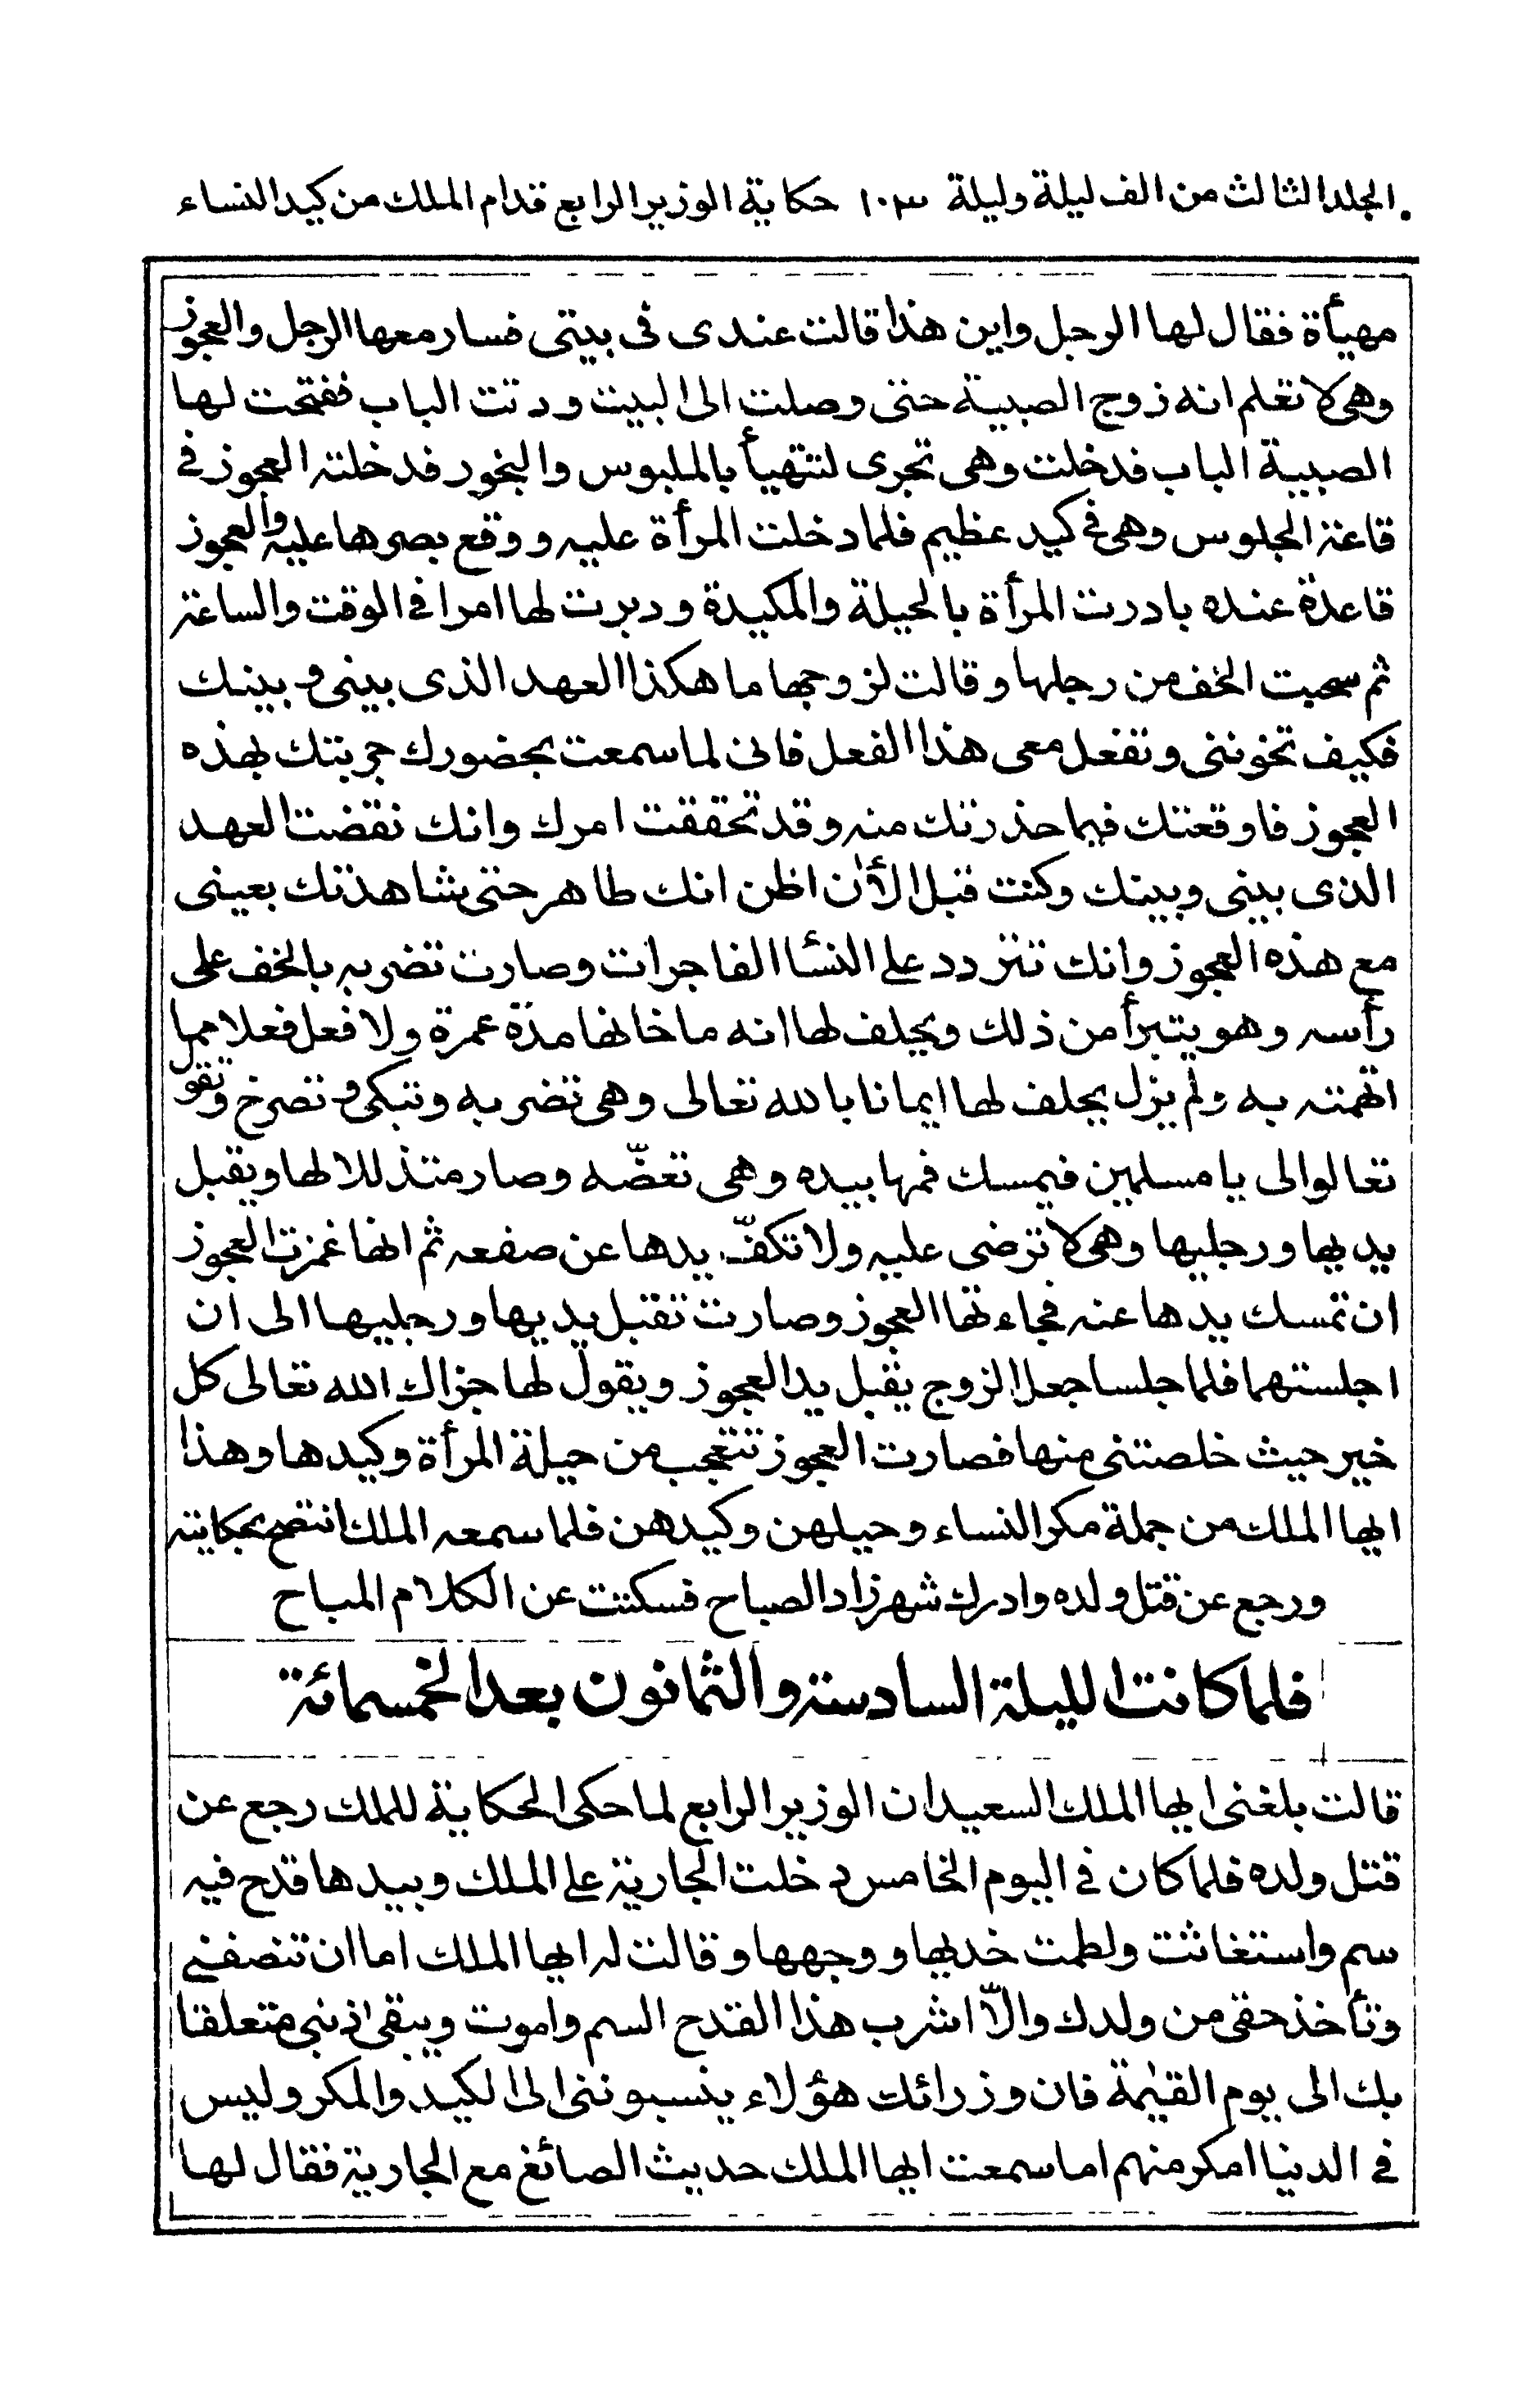 الجلد الثالث من الف ليلة وليلة ١٠٣ حكاية الوزير الرابع قدام الملك من كيد النساء
مهيأة فقال لها الرجل واين هذا قالت عندى فى بيتى فسار معها الرجل والعجوز
وهى لا تعلم انه زوج الصبية حتى وصلت الى البيت ودقت الباب ففتحت لها
الصبية الباب فدخلت وهى تجرى لتتهيأ بالملبوس والبخور فدخلته العجوز فى
قاعة الجلوس وهى فى كيد عظيم فلما دخلت المرأة عليه ووقع بصرها عليه والعجوز
قاعدة عنده بادرت المرأة بالحيلة والمكيدة ودبرت لها امرا فى الوقت والساعة
ثم سحبت الخف من رجلها وقالت لزوجها ما هكذا العهد الذى بينى وبينك
فكيف تخوننى وتفعل معى هذا الفعل فانى لما سمعت بحضورك جربتك بهذه
العجوز فاوقعتك فيما حذرتك منه وقد تحققت امرك وانك نقضت العهد
الذى بينى وبينك وكنت قبل الأن اظن انك طاهر حتى شاهدتك بعينى
مع هذه العجوز وانك تتردد على النسٔا الفاجرات وصارت تضربه بالخف على
رأسه وهو يتبرأ من ذلك ويحلف لها انه ما خانها مدة عمرة ولا فعل فعلا مما
اتهمته به ولم يزل يحلف لها ايمانا بالله تعالى وهى تضربه وتبكى وتصرخ وتقول
تعالوا الى يا مسلمين فيمسك فمها بيده وهى تعضّه وصار متذللا لها ويقبل
يديها ورجليها وهى لا ترضى عليه ولا تكفّ يدها عن صفعه ثم انها غمزت العجوز
ان تمسك يدها عنه فجاءتها العجوز وصارت تقبل يديها ورجليها الى ان
اجلستهما فلما جلسا جعل الزوج يقبل يد العجوز ويقول لها جزاك الله تعالى كل
خير حيث خلصتنى منها فصارت العجوز تتعجب من حيلة المرأة وكيدها وهذا
ايها الملك من جملة مكر النساء وحيلهن وكيدهن فلما سمعه الملك انتصح بحكايته
ورجع عن قتل ولده وادرك شهرزاد الصباح فسكتت عن الكلام المباح
فلما كانت الليلة السادسة والثمانون بعد الخمسمائة
قالت بلغنى ايها الملك السعيد ان الوزير الرابع لما حكى الحكاية للملك رجع عن
قتل ولده فلما كان فى اليوم الخامس دخلت الجارية على الملك وبيدها قدح فيه
سم واستغاثت ولطمت خديها ووجهها وقالت له ايها الملك اما ان تنصفنى
وتأخذ حقى من ولدك والّا اشرب هذا القدح السم واموت ويبقى ذنبى متعلقا
بك الى يوم القيٰمة فان وزرائك هؤلاء ينسبوننى الى الكيد والمكر وليس
فى الدنيا امكر منهم اما سمعت ايها الملك حديث الصائغ مع الجارية فقال لها